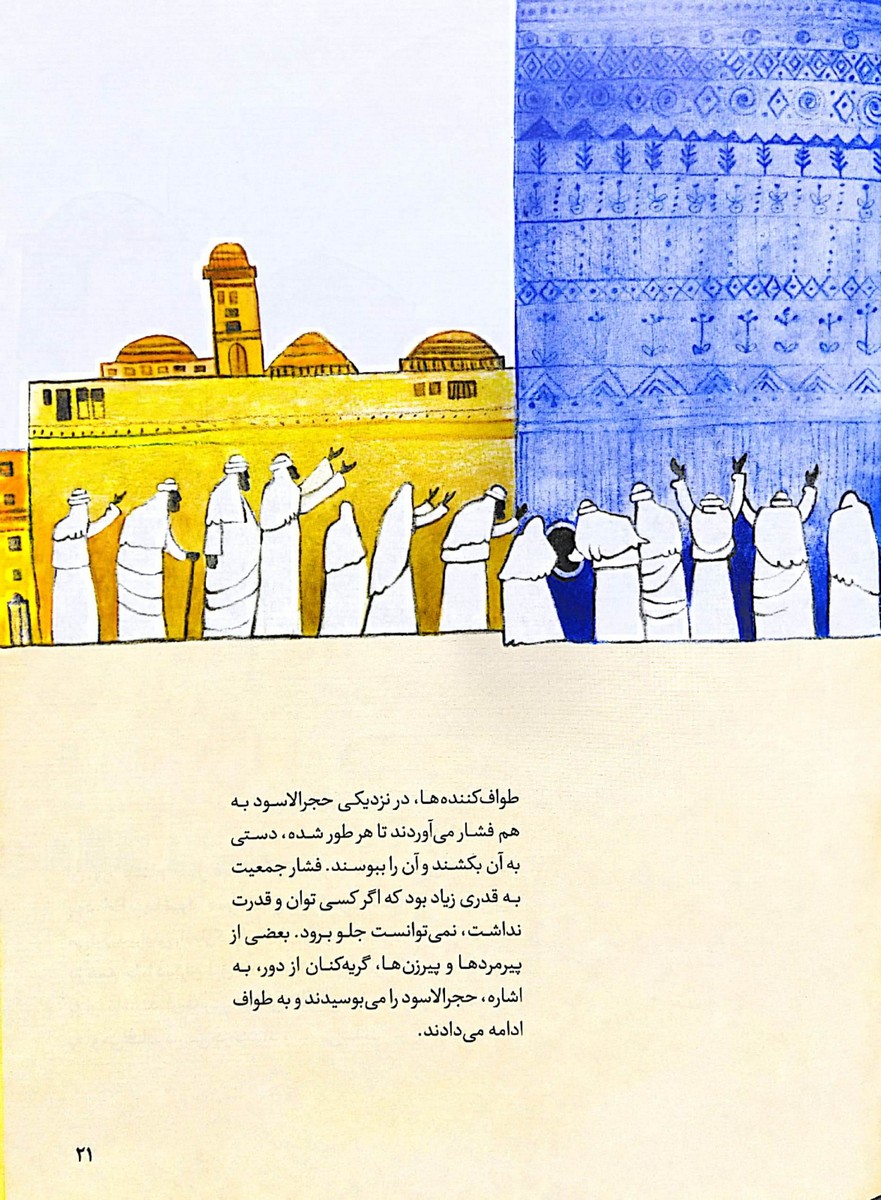 طواف‌کننده‌ها، در نزدیکی حجرالاسود به
هم فشار می‌آوردند تا هر طور شده، دستی
به آن بکشند و آن را ببوسند. فشار جمعیت
به قدری زیاد بود که اگر کسی توان و قدرت
نداشت، نمی‌توانست جلو برود. بعضی از
پیرمردها و پیرزن‌ها، گریه‌کنان از دور، به
اشاره، حجرالاسود را می‌بوسیدند و به طواف
ادامه می‌دادند.
۲۱